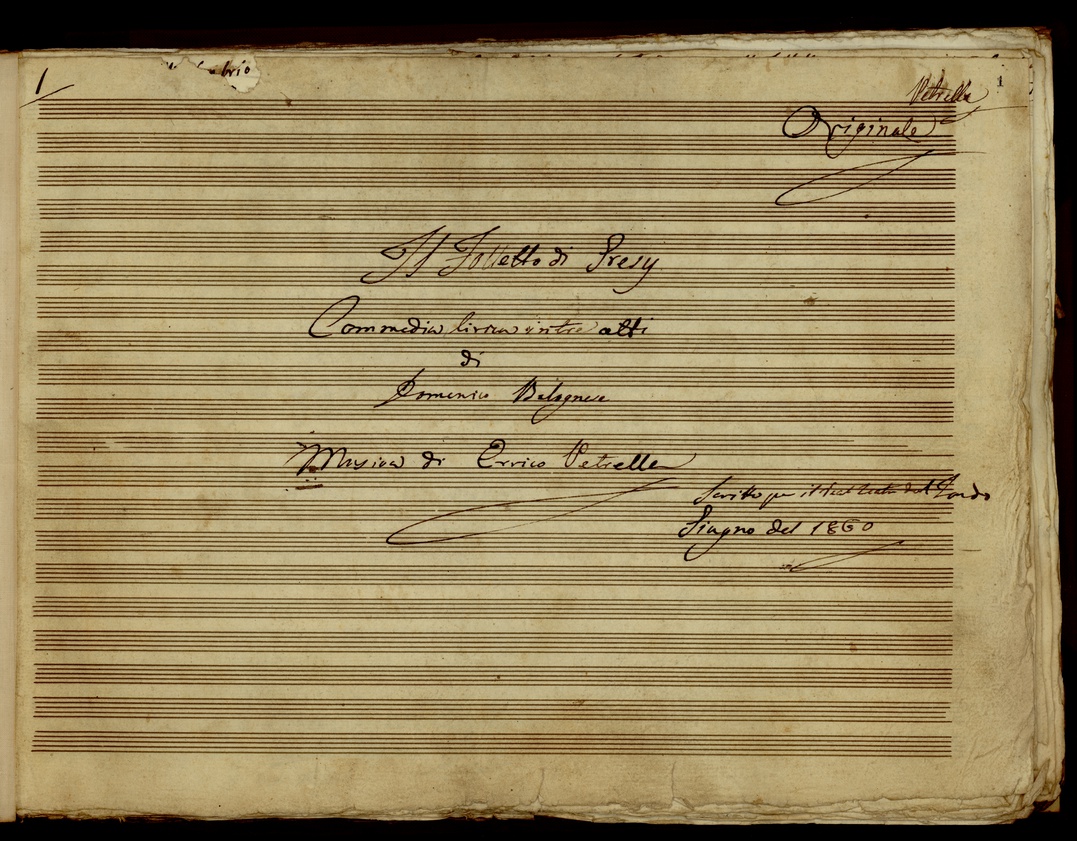 1
brio
1
Petrella
Originale
Il Folletto di Gresy
Commedia lirica in tre atti
di
Domenico Bolognese
Musica di Errico Petrella
Scritto pel Real teatro del Fondo
Giugno del 1860